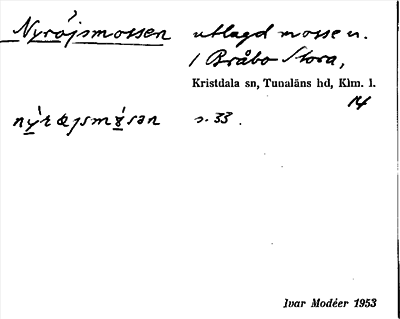 Nyröjsmossen utlagd mosse n.
/ Bråbo Stora,
Kristdala sn, Tunaläns hd, Klm. l.
14
s. 33.
Ivar Modéer 1953